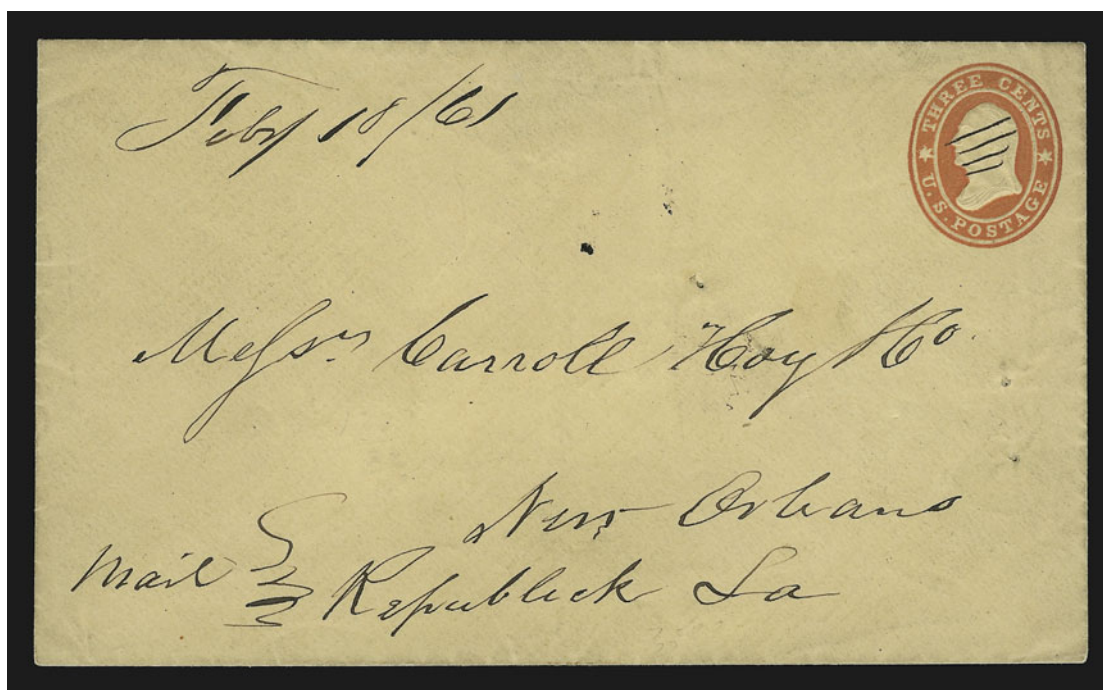 Feby 18/61
THREE CENTS
U.S. POSTAGE
Messrs. Carroll Hoy & Co.
New Orleans
Mail Republick La